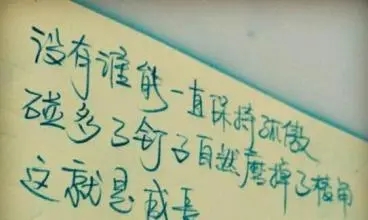 没有谁能一直保持孤傲
碰多了钉子自然磨掉了棱角
这就是成长